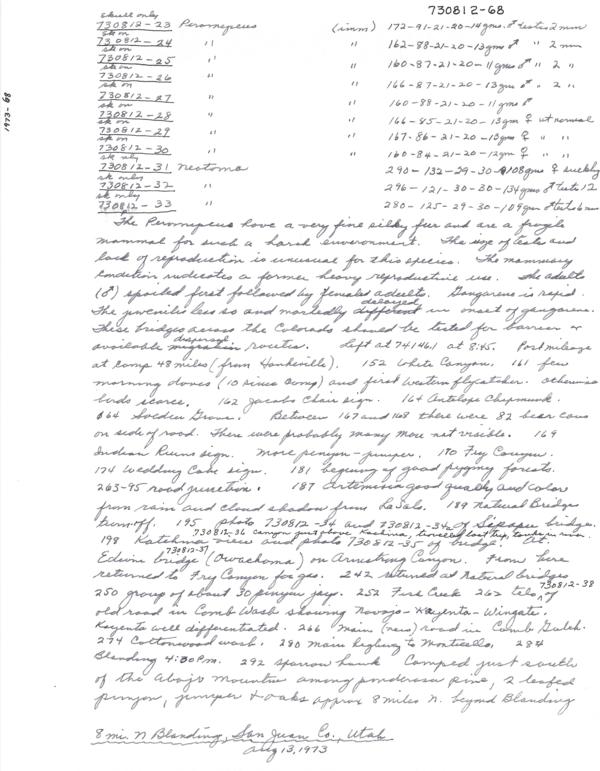 730812-68
skull only
730812-23 Peromyscus (imm) 172-91-21-20-14gms ♂ testis 2mm
sk on
730812-24 " " 162-88-21-20-13gms ♂ " 2mm
sk on
730812-25 " " 160-87-21-20-11gms ♂ " 2 "
sk on
730812-26 " " 166-87-21-20-13gms ♂ " 2 "
sk on
730812-27 " " 160-88-21-20-11gms ♂
sk on
730812-28 " " 166-85-21-20-13gm ♀ ut normal
sk on
730812-29 " " 167-86-21-20-13gms ♀ " "
sk on
730812-30 " " 160-84-21-20-12gm ♀ " "
sk only
730812-31 Neotoma 290-132-29-30-108gms ♀ suckling
sk only
730812-32 " 296-121-30-30-134gms ♂ testis 12
sk only
730812-33 " 280-125-29-30-109gms ♂ testis 6mm
1973-68
The Peromyscus have a very fine silky fur and are a fragile
mammal for such a harsh environment. The size of testes and
lack of reproduction is unusual for this species. The mammary
condition indicates a former heavy reproductive use. The adults
(♂) spoiled first followed by females adults. Gangarene is rapid.
The juveniles less so and markedly different delayed in onset of gangarene.
These bridges across the Colorado should be tested for barrier or
available migration dispersal routes. Left at 74146.1 at 8:45. Post mileage
at camp 48 miles (from Hanksville). 152 White Canyon. 161 few
morning doves (10 since camp) and first western flycatcher. Otherwise
birds scarce. 162 Jacobs Chair sign. 164 Antelope Chipmunk.
164 Soldier Grave. Between 167 and 168 there were 82 bear cans
on side of road. There were probably many more not visible. 169
Indian Ruins sign. More pinyon-juniper. 170 Fry Canyon.
174 Wedding Cake sign. 181 begining of good pigmy forests.
263-95 road junction. 187 Artemisia good quality and color
from rain and cloud shadow from LaSals. 189 Natural Bridge
turn off. 195 photo 730812-34 and 730812-34a of Sipapu bridge.
730812-36 canyon just above Kachina, traveled last trip, tanks in ruin.
198 Katchina view and photo 730812-35 of bridge. At
730812-37
Edwin bridge (Owachoma) on Armstrong Canyon. From here
returned to Fry Canyon for gas. 242 returned at Natural bridges
250 group of about 30 pinyon jays. 252 Fish Creek 262 tele of 730812-38
old road in Comb Wash showing Navajo-Kayenta-Wingate.
Kayenta well differentiated. 266 Main (new) road in Comb Gulch.
274 Cottonwood wash. 280 main highway to Monticello. 284
Blanding 4:30 P.m. 292 sparrow hawk Camped just south
of the Abajo Mountain among ponderosa pine, 2 leafed
pinyon, juniper + oaks approx 8 miles N. beyond Blanding
8 mi. N Blanding, San Juan Co., Utah
Aug 13, 1973